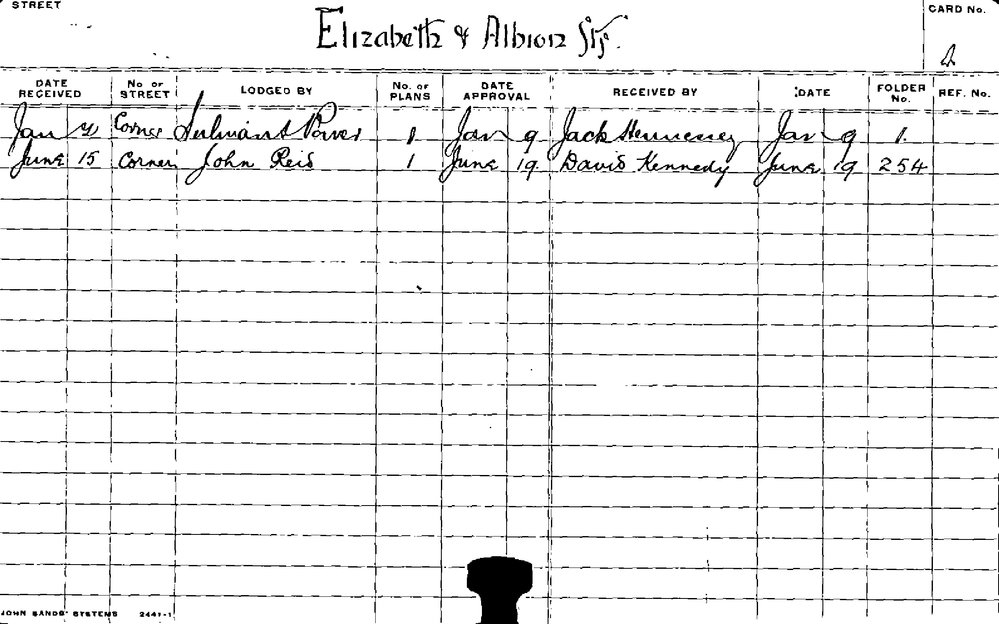 STREET Elizabeth & Albion Sts. CARD No.
2
DATE RECEIVED No OF STREET LODGED BY No. OF PLANS DATE APPROVAL RECEIVED BY DATE FOLDER No. REF. No.
Jan Corner Sulman & Power 1 Jan 9 Jack Hennessey Jan 9 1.
June 15 Corner John Reid 1 June 19 David Kennedy June 19 254
JOHN SANDS' SYSTEMS 2441-1